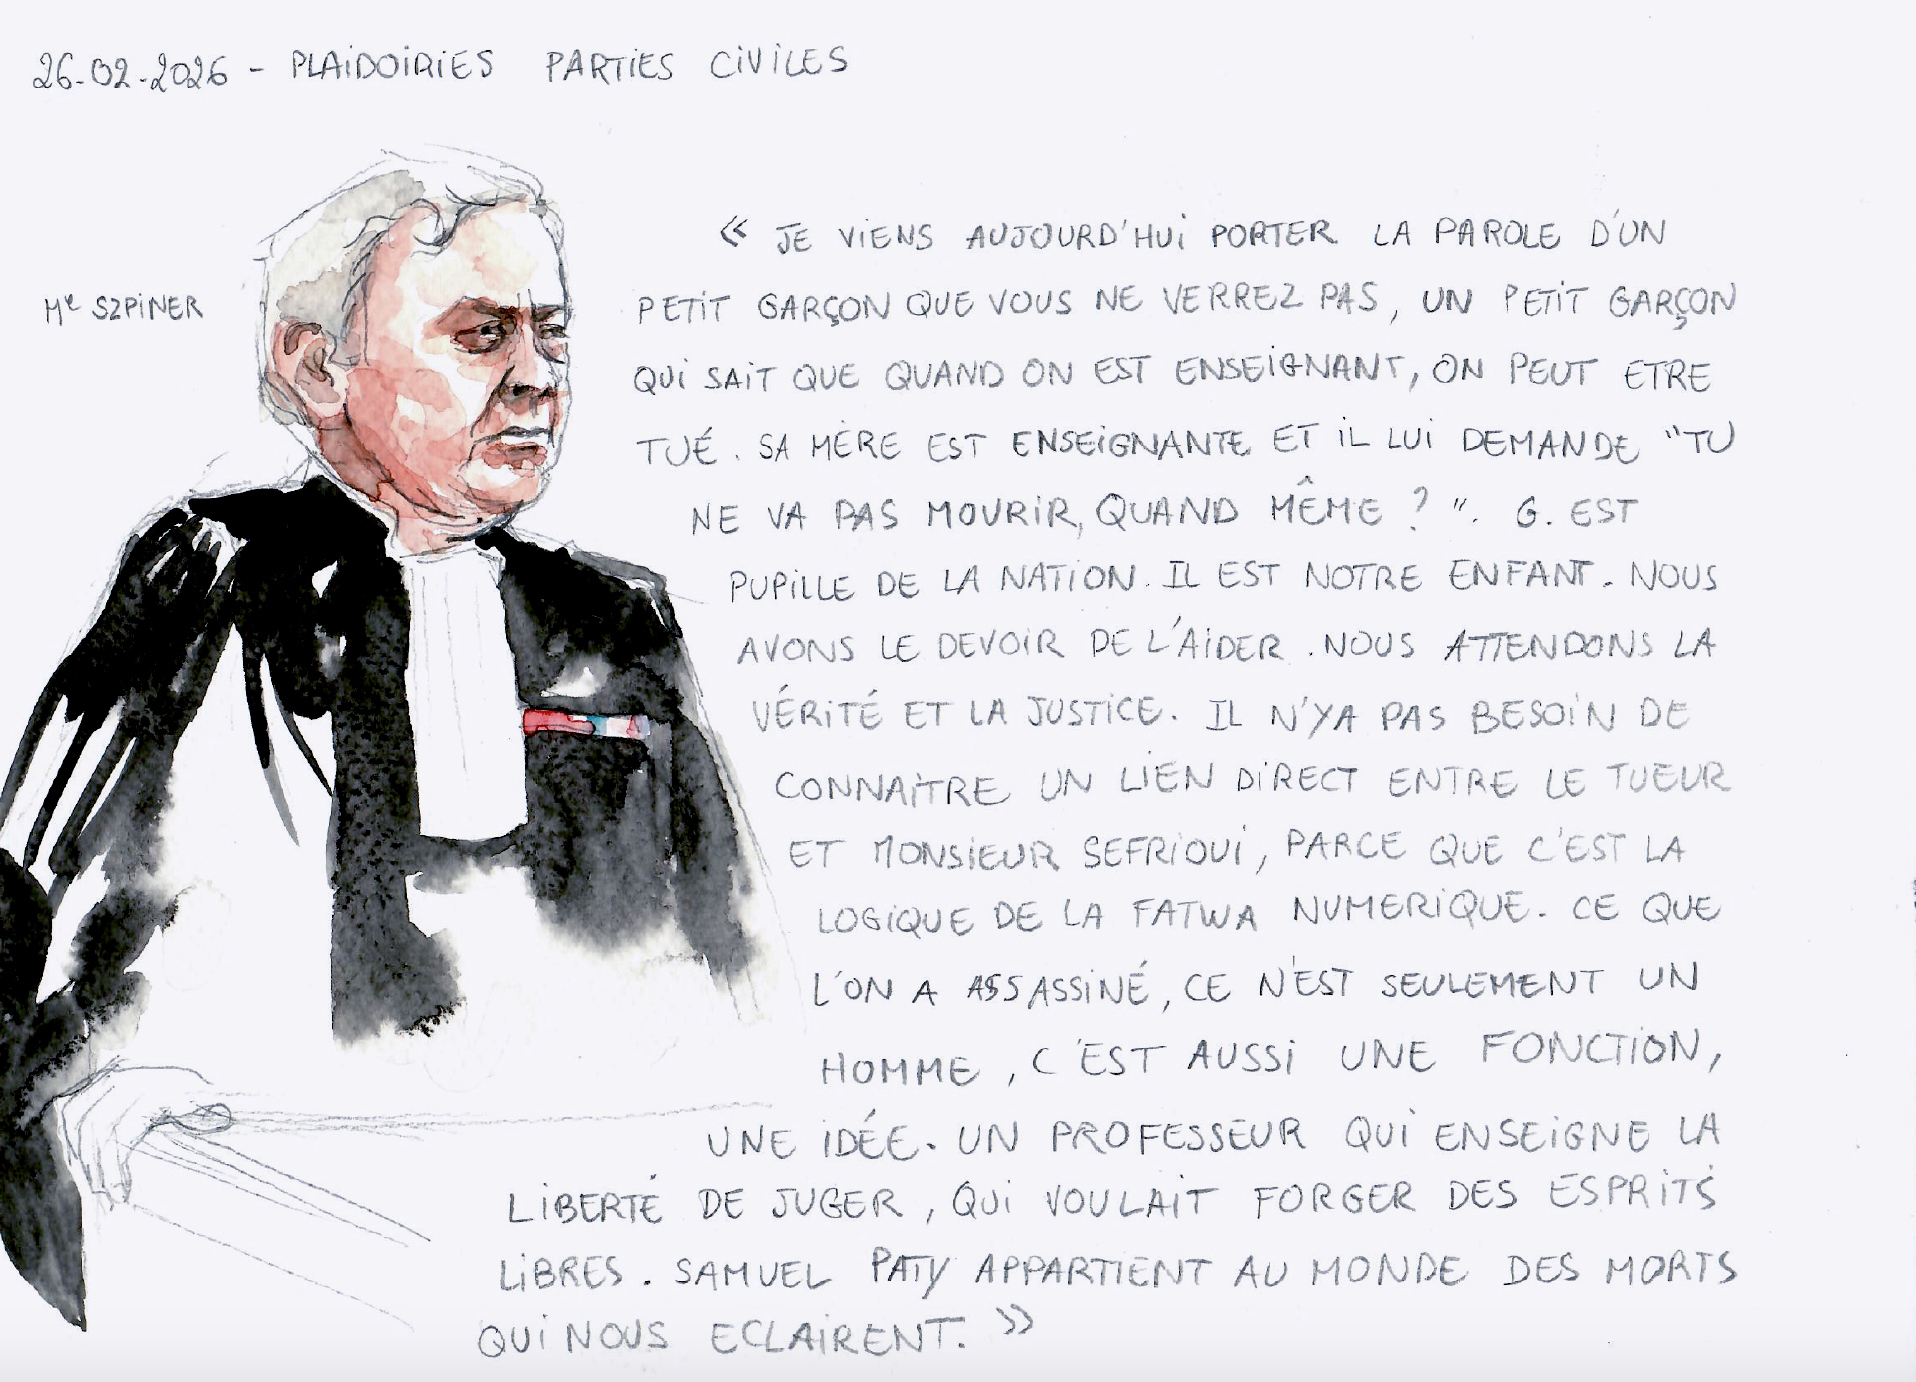 26-02-2026 - PLAiDOiRiES PARTiES CiViLES
Me SZPiNER
« JE ViENS AUJOURD'HUi PORTER LA PAROLE D'UN
PETiT GARÇON QUE VOUS NE VERREZ PAS, UN PETiT GARÇON
QUi SAiT QUE QUAND ON EST ENSEiGNANT, ON PEUT ETRE
TUÉ. SA MÈRE EST ENSEiGNANTE ET iL LUi DEMANDE "TU
NE VA PAS MOURiR, QUAND MÊME ? ". G. EST
PUPiLLE DE LA NATiON. IL EST NOTRE ENFANT. NOUS
AVONS LE DEVOiR DE L'AiDER. NOUS ATTENDONS LA
VÉRiTÉ ET LA JUSTiCE. IL N'YA PAS BESOiN DE
CONNAiTRE UN LiEN DiRECT ENTRE LE TUEUR
ET MONSiEUR SEFRiOUi, PARCE QUE C'EST LA
LOGiQUE DE LA FATWA NUMERiQUE. CE QUE
L'ON A ASSASSiNÉ, CE N'EST SEULEMENT UN
HOMME, C'EST AUSSi UNE FONCTiON,
UNE iDÉE. UN PROFESSEUR QUi ENSEiGNE LA
LiBERTÉ DE JUGER, QUi VOULAiT FORGER DES ESPRiTS
LiBRES. SAMUEL PATY APPARTiENT AU MONDE DES MORTS
QUi NOUS ECLAiRENT. »